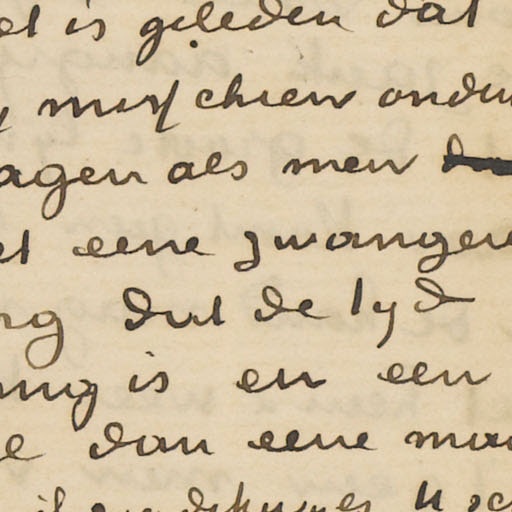 et is geleden dat
misschien onder
agen als men
et eene zwangere
ng dat de tyd
ning is en een
e dan eene man